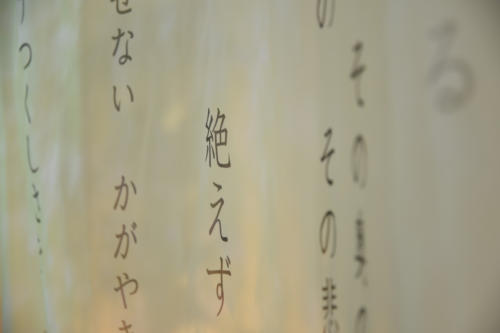 る
その
の その
絶えず
せない かがや
つくしさ